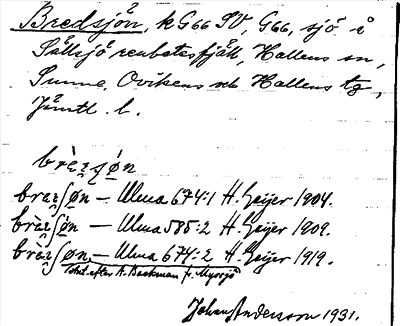 Bredsjön, k G66 SV, G66, sjö i
Sällsjö renbetesfjäll, Hallens sn,
Sunne, Ovikens och Hallens tg,
Jämtl. l.
brèʒʃö́n
braʒʃøn – Ulma 674:1 H. Geijer 1904.
brèʒʃøn – Ulma 585:2 H. Geijer 1909.
brèʒʃøn, – Ulma 674:2 H. Geijer 1919.
efter A. Backman fr. Myssjö
Johan Anderson 1931.